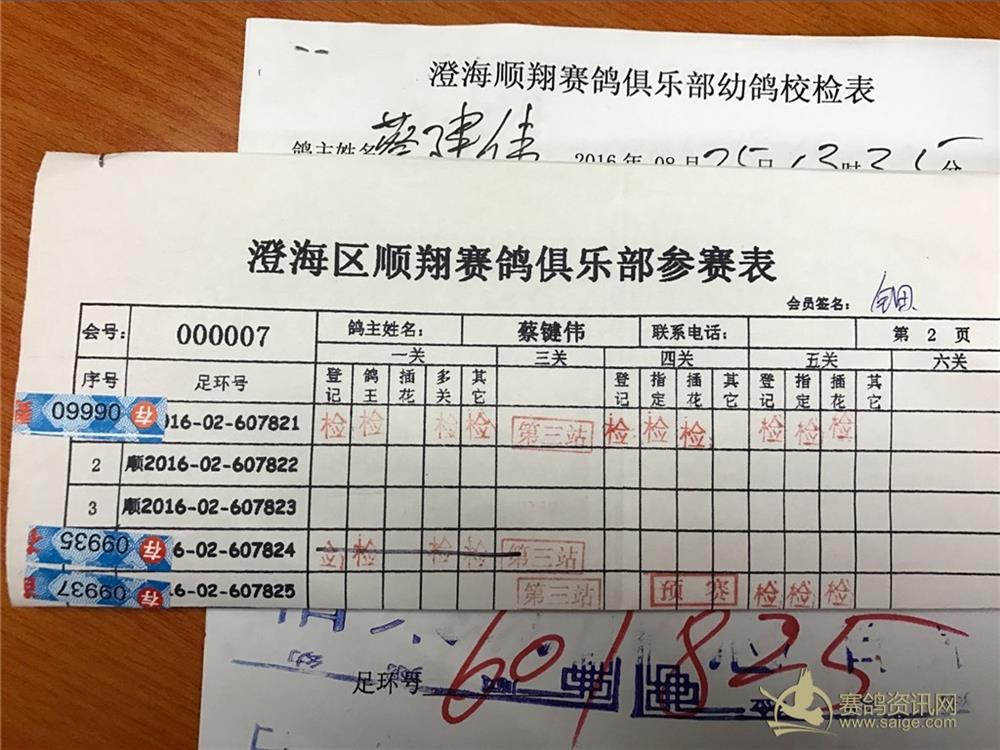 澄海顺翔赛鸽俱乐部幼鸽校检表
鸽主姓名 蔡键伟 2016年08月25日13时35分
澄海区顺翔赛鸽俱乐部参赛表
会员签名:
会号: 000007 鸽主姓名: 蔡键伟 联系电话: 第 2 页
一关 三关 四关 五关 六关
序号 足环号 登记 鸽王 插花 多关 其它 登记 指定 插花 其它 登记 指定 插花 其它
06660 存 16-02-607821 检 检 检 检 第三站 检 检 检 检 检 检
2 顺2016-02-607822
3 顺2016-02-607823
09935 存 6-02-607824 检 检 检 第三站
09937 存 6-02-607825 第三站 预赛 检 检 检
足环号 601825
赛鸽资讯网
www.saige.com